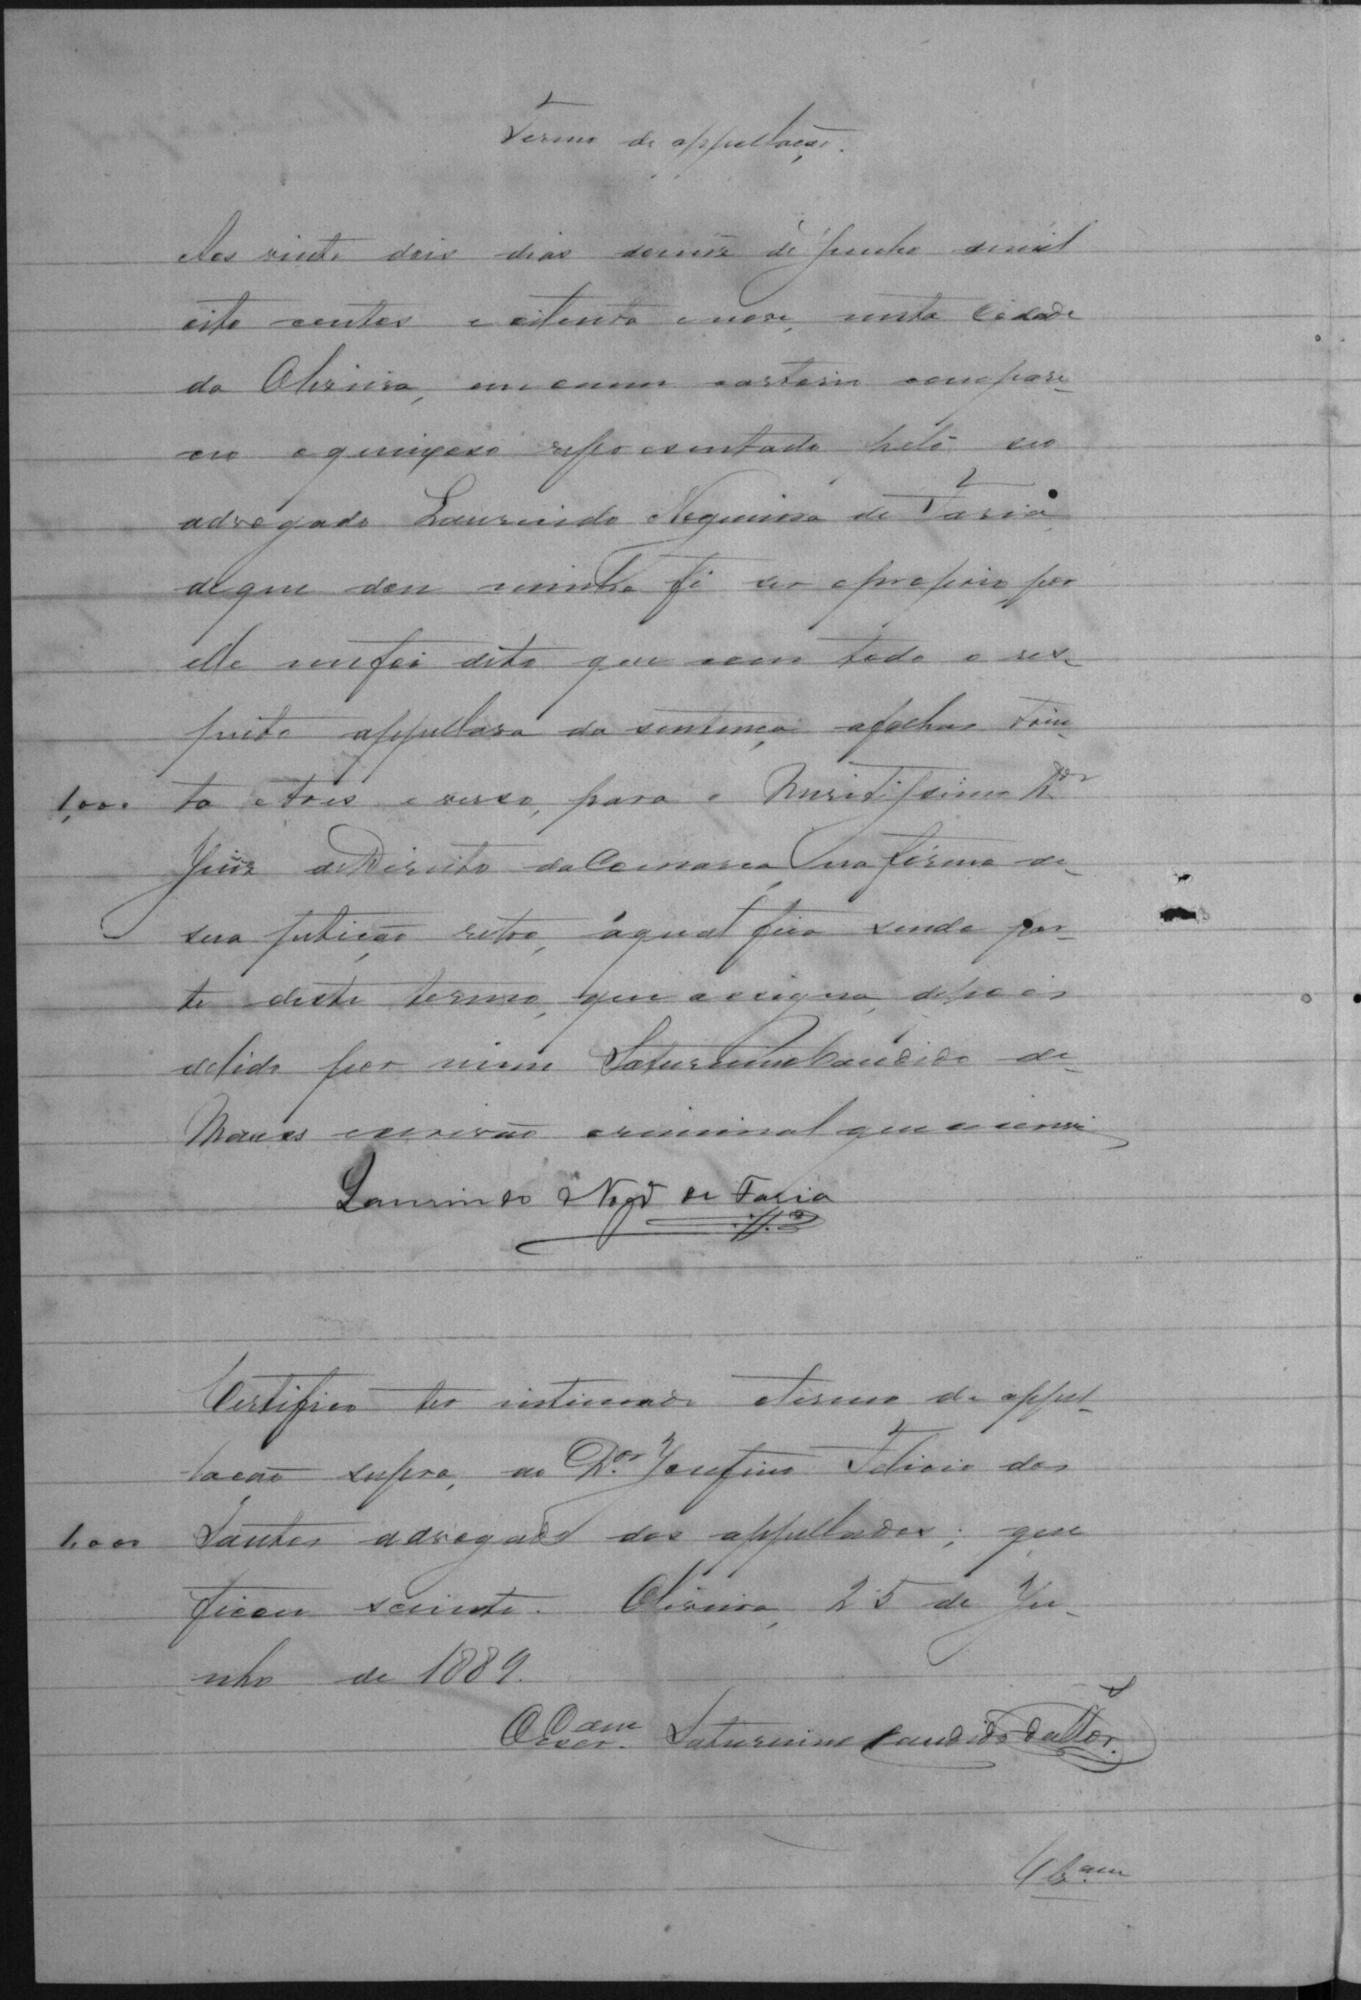 Termo de appellação.
Aos vinte dois dias domez de Junho demil
oito centos e oitenta enove, nesta Cidade
da Oliveira, em meu cartorio compare-
ceo oqueixoso representado pelo seo
advogado Laurindo Nogueira de Faria,
deque dou minha fé ser oproprio, por
elle mefoi dito que com todo o res-
peito appellava da sentença afolhas trin-
1,000 ta etres e verso, para o Meritissimo Dor
Juiz deDireito daComarca, na fórma de
sua petição retro, aqual fica sendo par-
te deste termo, que assigna, depois
delido por mim Saturnino Candido de
Moraes escrivão criminal que escrevi
Laurindo Nogra de Faria
Certifico ter intimado otermo de appel-
lação supra, ao Dor Josefino Felicio dos
1.000 Santos advogado dos appellados; que
ficou sciente. Oliveira, 25 de Ju-
nho de 1889.
O Escam Saturnino Candido de Mor.